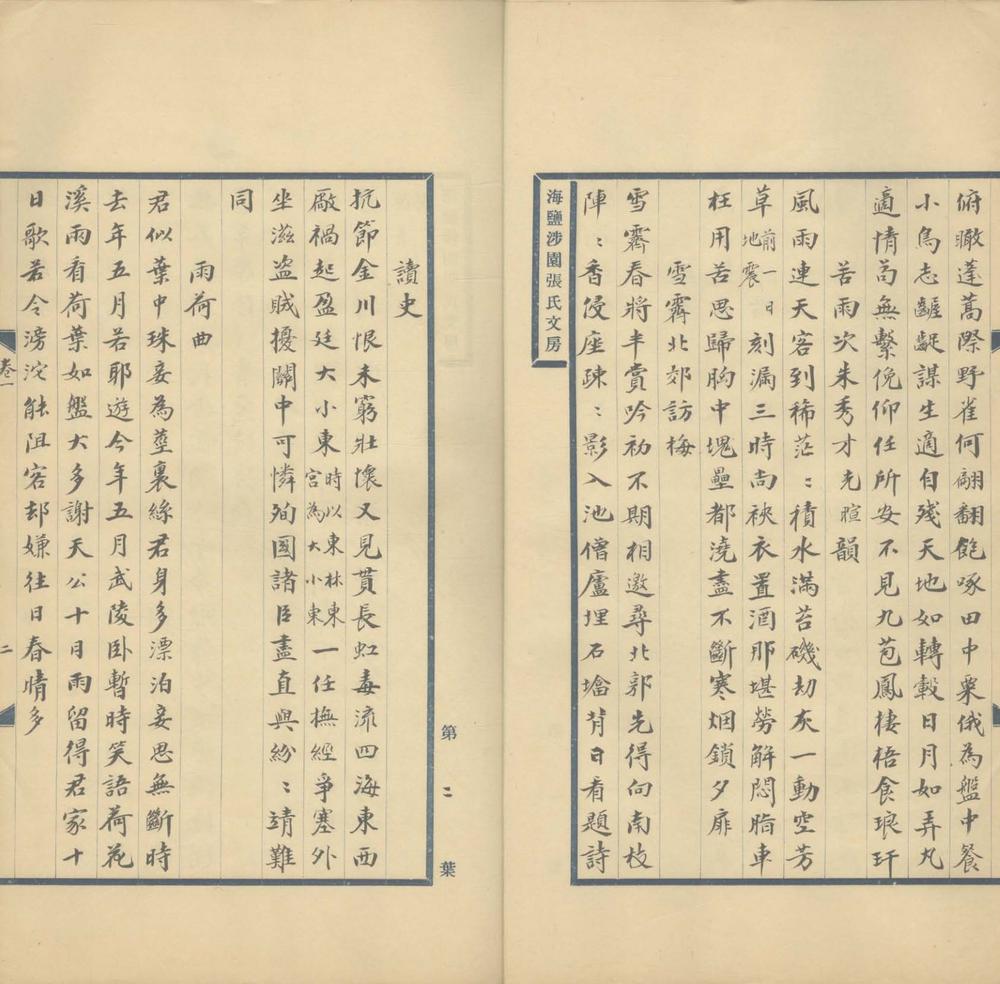 俯瞰蓬蒿際野雀何翩翻飽啄田中粟俄為盤中餐
小鳥志齷齪謀生適自殘天地如轉轂日月如弄丸
適情苟無繫俛仰任所安不見九苞鳳棲梧食琅玕
苦雨次朱秀才光暄韻
風雨連天客到稀茫〻積水滿苔磯劫灰一動空芳
草前一日地震刻漏三時尚裌衣置酒那堪勞解悶脂車
枉用苦思歸胸中塊壘都澆盡不斷寒烟鎖夕扉
雪霽北郊訪梅
雪霽春將半賞吟初不期相邀尋北郭先得向南枝
陣〻香侵座疎〻影入池僧廬埋石塔背日看題詩
海鹽涉園張氏文房
第二葉
讀史
抗節金川恨未窮壯懷又見貫長虹毒流四海東西
廠禍起盈廷大小東時以東林東宮為大小東一任撫經爭塞外
坐滋盜賊擾關中可憐殉國諸臣盡直與紛〻靖難
同
雨荷曲
君似葉中珠妾為莖裏絲君身多漂泊妾思無斷時
去年五月若耶遊今年五月武陵卧暫時笑語荷花
溪雨看荷葉如盤大多謝天公十月雨留得君家十
日歌若令滂沱能阻客却嫌往日春晴多
卷一
二